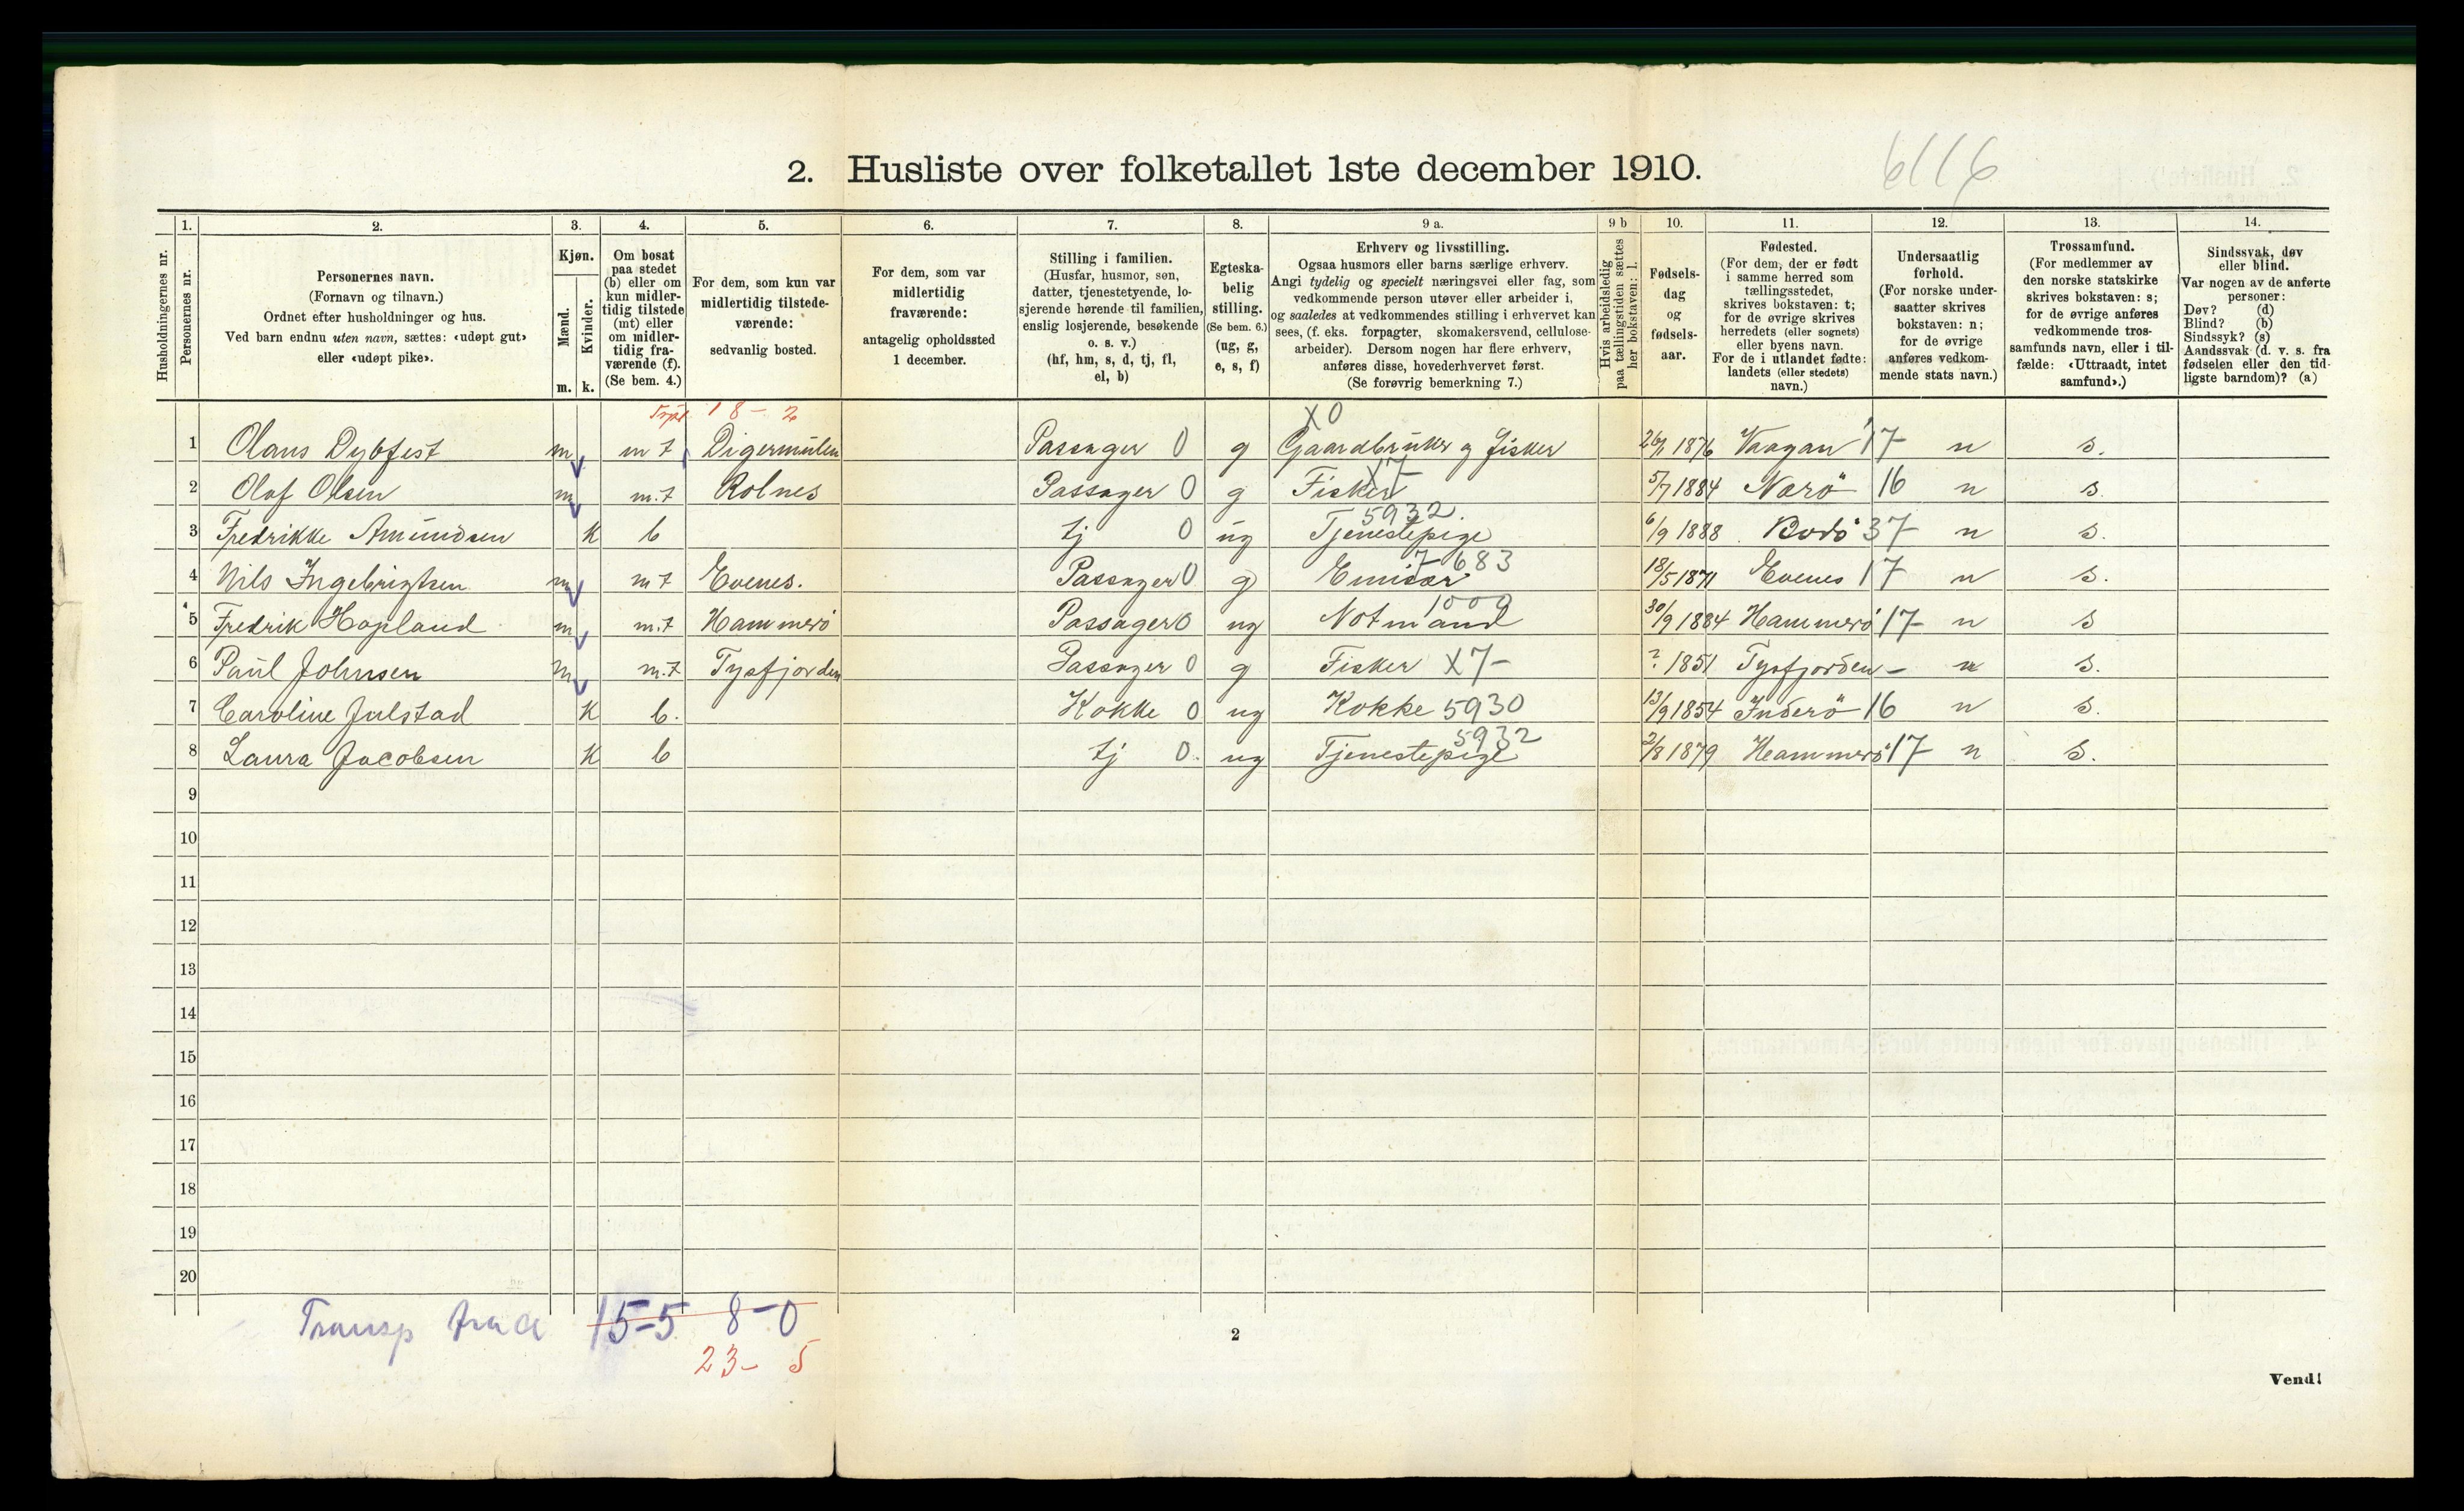 2. Husliste over folketallet 1ste december 1910.
6116
1. 2. 3. 4. 5. 6. 7. 8. 9 a. 9 b 10. 11. 12. 13. 14.
Husholdningernes nr.
Personernes nr.
Personernes navn.
(Fornavn og tilnavn.)
Ordnet efter husholdninger og hus.
Ved barn endnu uten navn, sættes: «udøpt gut»
eller «udøpt pike».
Kjøn.
Mænd.
Kvinder.
m. k.
Om bosat
paa stedet
(b) eller om
kun midler-
tidig tilstede
(mt) eller
om midler-
tidig fra-
værende (f).
(Se bem. 4.)
For dem, som kun var
midlertidig tilstede-
værende:
sedvanlig bosted.
For dem, som var
midlertidig
fraværende:
antagelig opholdssted
1 december.
Stilling i familien.
(Husfar, husmor, søn,
datter, tjenestetyende, lo-
sjerende hørende til familien,
enslig losjerende, besøkende
o. s. v.)
(hf, hm, s, d, tj, fl,
el, b)
Egteska-
belig
stilling.
(Se bem. 6.)
(ug, g,
e, s, f)
Erhverv og livsstilling.
Ogsaa husmors eller barns særlige erhverv.
Angi tydelig og specielt næringsvei eller fag, som
vedkommende person utøver eller arbeider i,
og saaledes at vedkommendes stilling i erhvervet kan
sees, (f. eks. forpagter, skomakersvend, cellulose-
arbeider). Dersom nogen har flere erhverv,
anføres disse, hovederhvervet først.
(Se forøvrig bemerkning 7.)
Hvis arbeidsledig
paa tællingstiden sættes
her bokstaven: l.
Fødsels-
dag
og
fødsels-
aar.
Fødested.
(For dem, der er født
i samme herred som
tællingsstedet,
skrives bokstaven: t;
for de øvrige skrives
herredets (eller sognets)
eller byens navn.
For de i utlandet fødte:
landets (eller stedets)
navn.)
Undersaatlig
forhold.
(For norske under-
saatter skrives
bokstaven: n;
for de øvrige
anføres vedkom-
mende stats navn.)
Trossamfund.
(For medlemmer av
den norske statskirke
skrives bokstaven: s;
for de øvrige anføres
vedkommende tros-
samfunds navn, eller i til-
fælde: «Uttraadt, intet
samfund».)
Sindssvak, døv
eller blind.
Var nogen av de anførte
personer:
Døv? (d)
Blind? (b)
Sindssyk? (s)
Aandssvak (d. v. s. fra
fødselen eller den tid-
ligste barndom)? (a)
18 - 2 X0
1 Olaus Dybfest m mt Digermulen Passager 0 g Gaardbruker og fisker 26/1 1876 Vaagan 17 n s.
2 Olaf Olsen m m.t Rolnes Passager 0 g Fisker X7- 5/7 1884 Nærö 16 n s.
3 Fredrikke Amundsen K b tj 0 ug Tjenestepige 5932. 6/9 1888 Bodö 37 n s.
4 Nils Ingebrigtsen m mt Evenes. Passager 0 g Emisær 7683 18/5 1871 Evenes 17 n s.
5 Fredrik Hopland m m.t Hammerö Passager 0 ug Notmand 1000 30/9 1884 Hammerö 17- n s
6 Paul Johnsen m m.t Tysfjorden Passager 0 g Fisker X7- ? 1851 Tysfjorden - n s.
7 Caroline Julstad K b. Kokke 0 ug Kokke 5930 13/9 1854 Inderö 16 n s.
8 Laura Jacobsen K b tj 0. ug Tjenestepige 5932 2/8 1879 Hammerö 17 n s.
9
10
11
12
13
14
15
16
17
18
19
20
Transp 15-5 8-0
23- 5
2
Vend!